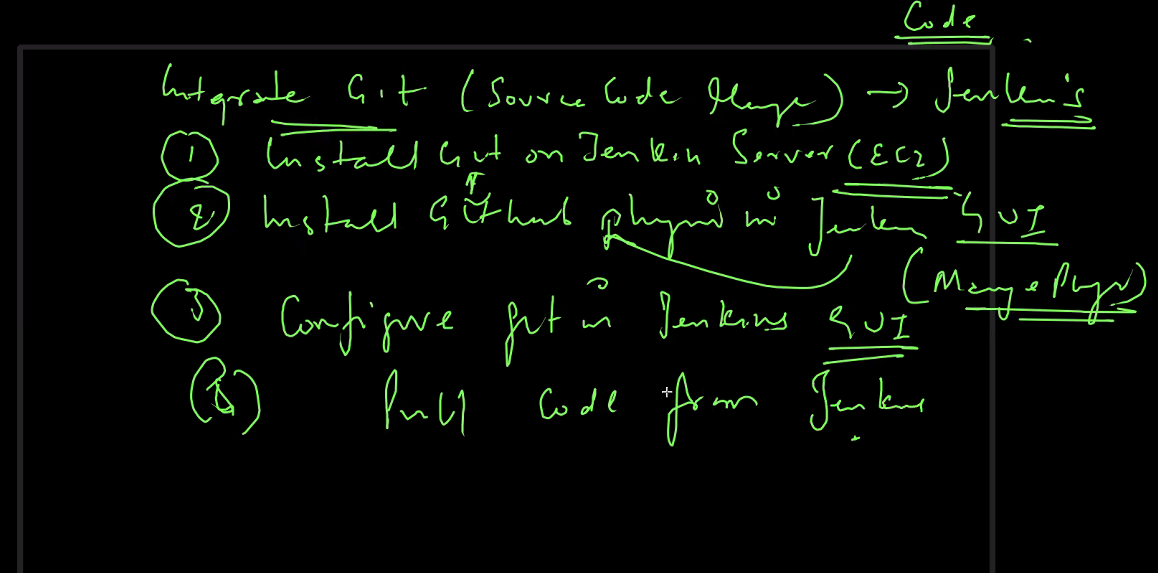 Code
Integrate Git (Source Code Mange) → Jenkin's
① Install Git on Jenkin Server (EC2)
② Install Github plugin in Jenkin GUI
(Mange Plugn)
③ Configure git in Jenkins GUI
④ Pull Code from Jenkins